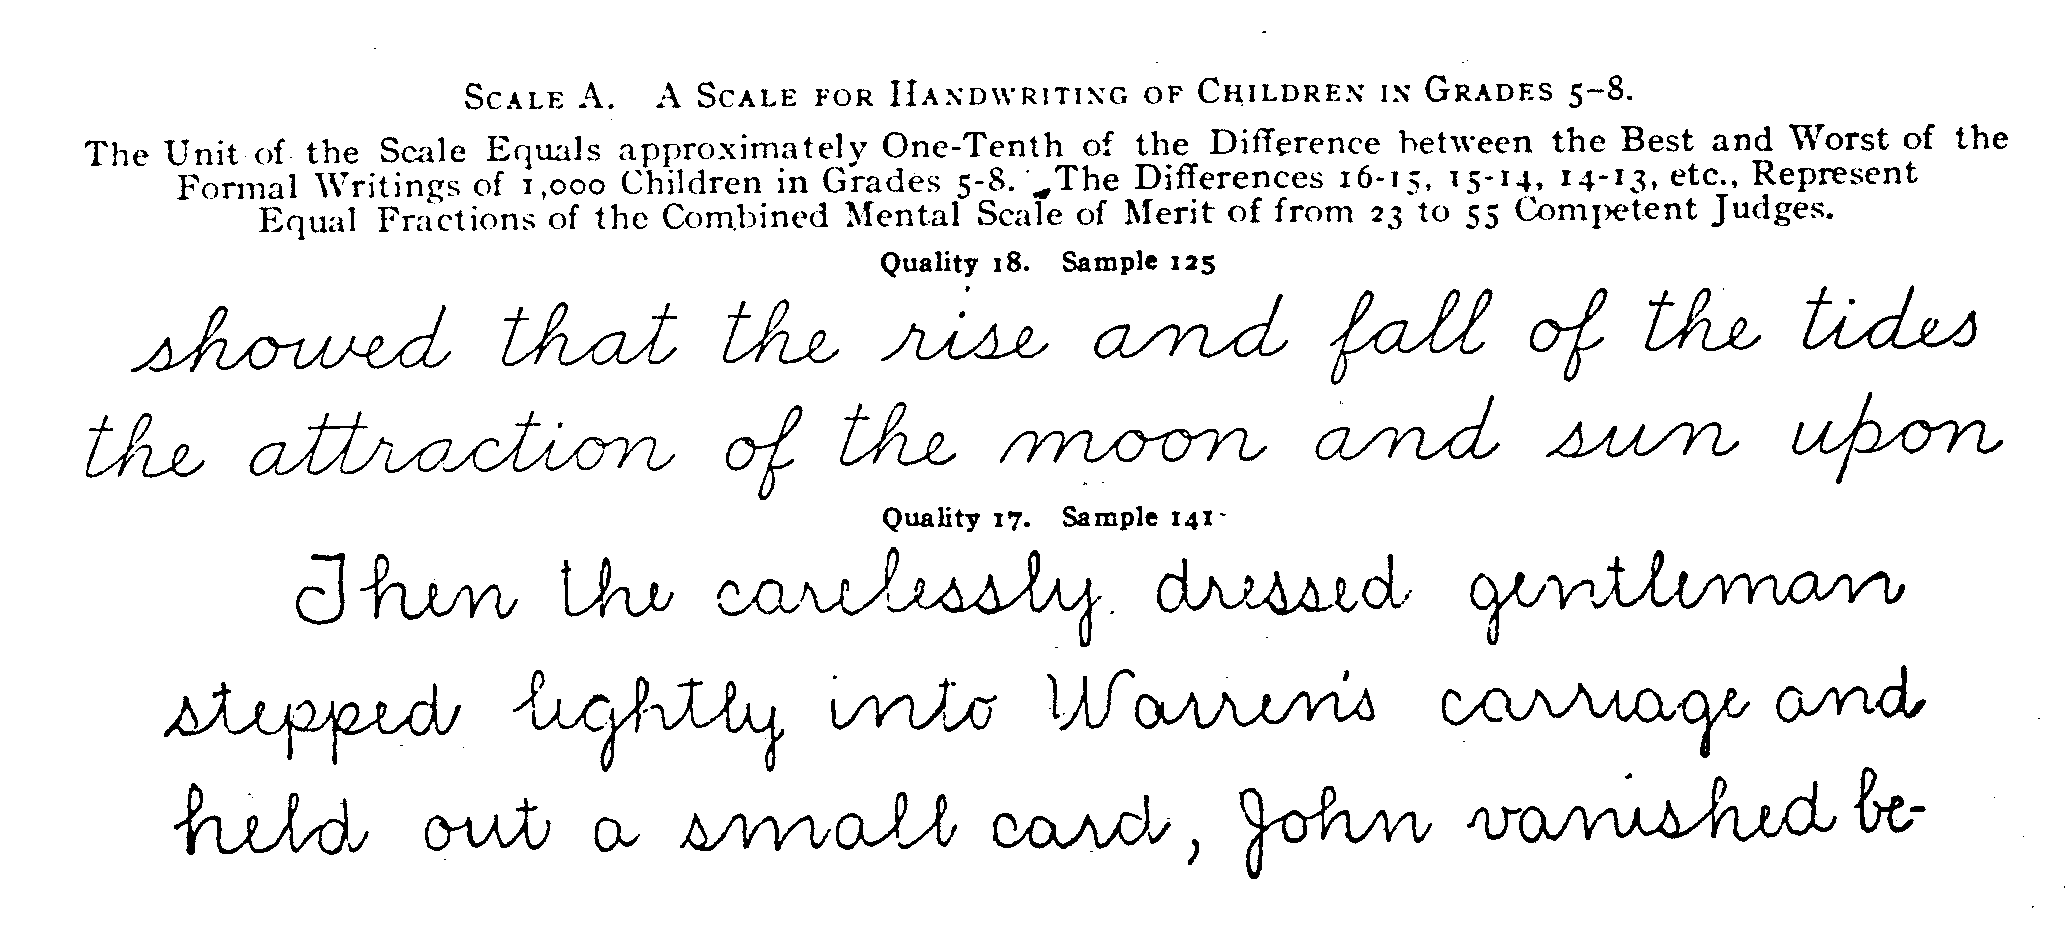 SCALE A. A SCALE FOR HANDWRITING OF CHILDREN IN GRADES 5–8.
The Unit of the Scale Equals approximately One-Tenth of the Difference between the Best and Worst of the
Formal Writings of 1,000 Children in Grades 5-8. The Differences 16-15, 15-14, 14-13, etc., Represent
Equal Fractions of the Combined Mental Scale of Merit of from 23 to 55 Competent Judges.
Quality 18. Sample 125
showed that the rise and fall of the tides
the attraction of the moon and sun upon
Quality 17. Sample 141
Then the carelessly dressed gentleman
stepped lightly into Warren's carriage and
held out a small card, John vanished be-